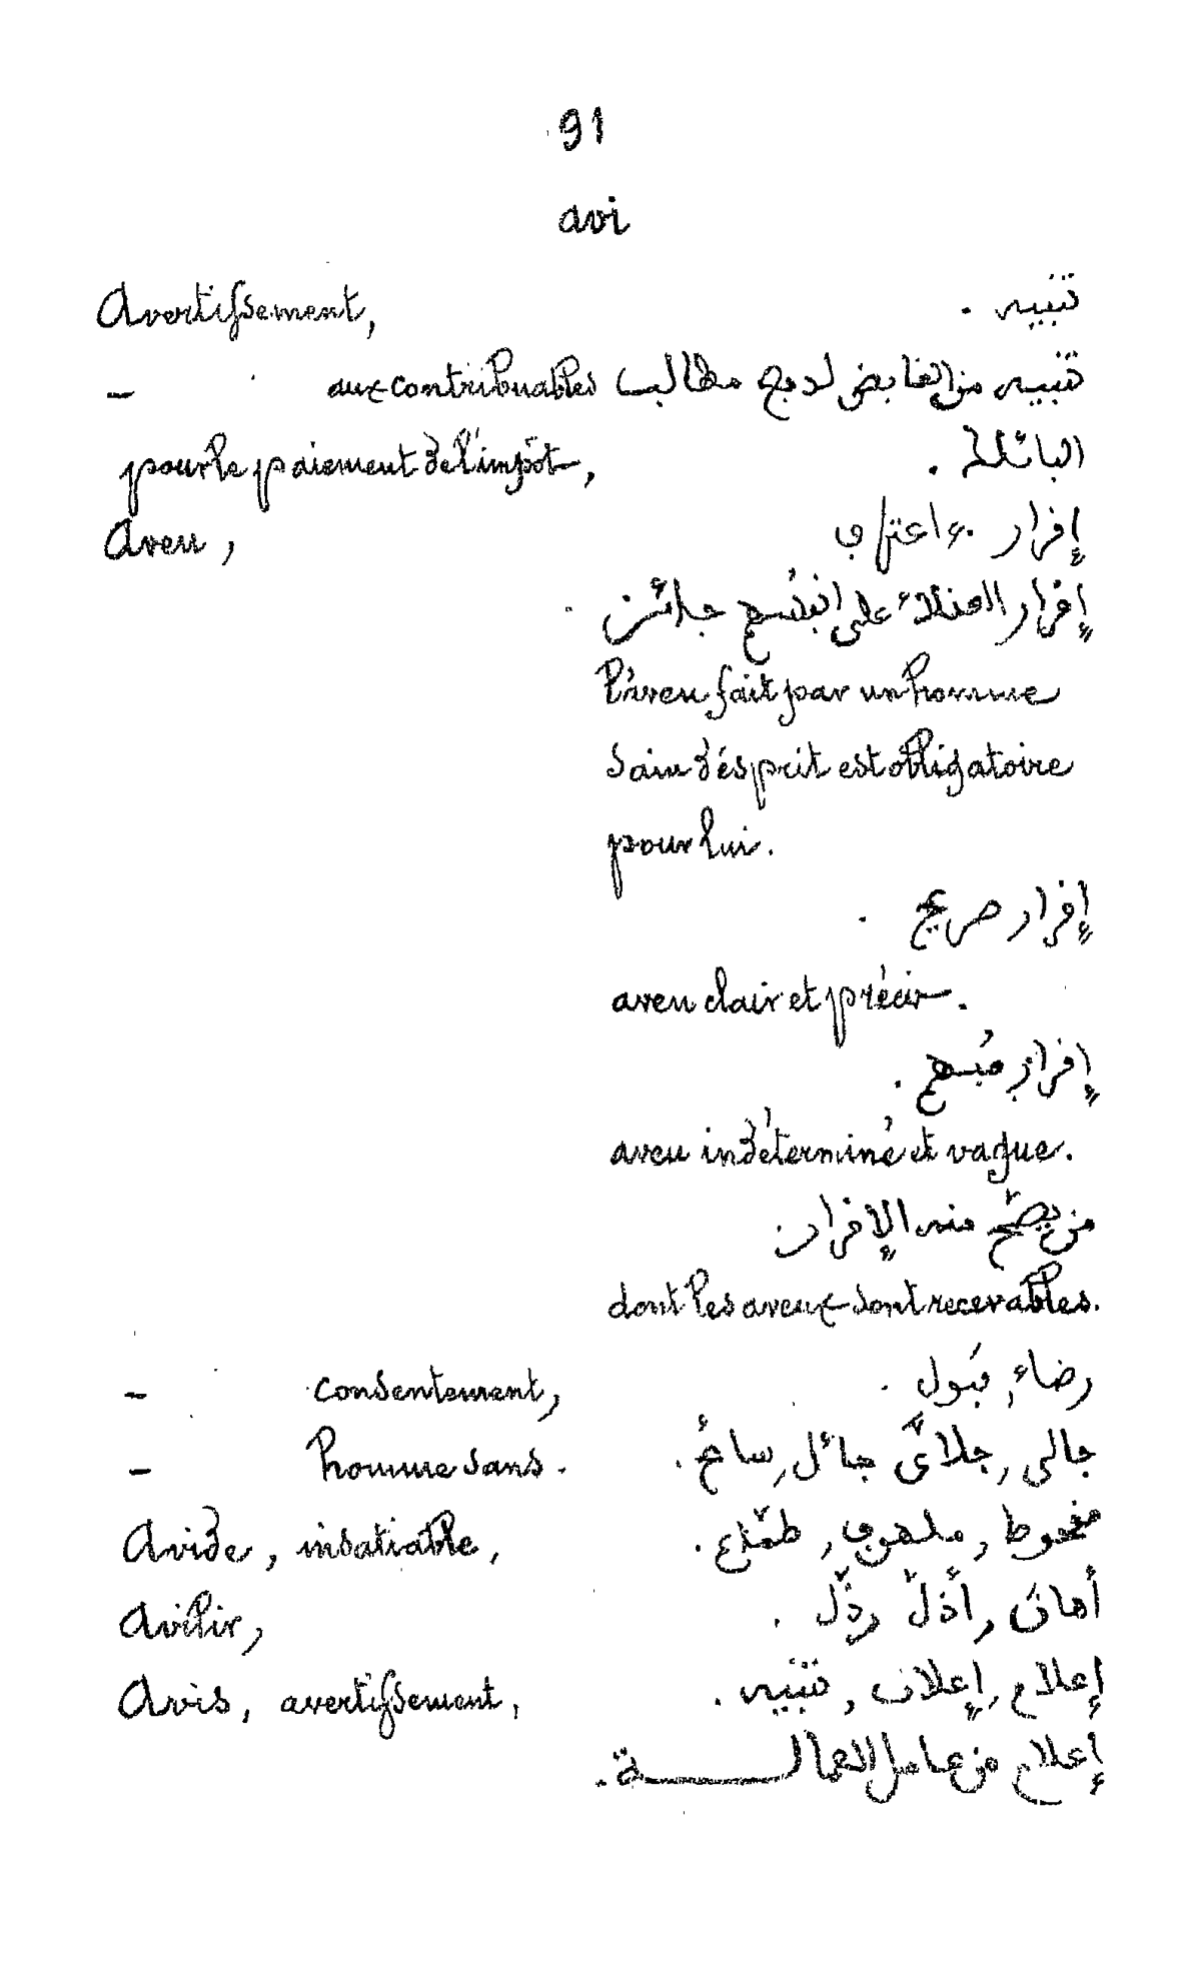 91
avi
Avertissement, تنبيه .
- aux contribuables تنبيه من القابض لدفع مطالب
pour le paiement de l'impôt, البائلك .
Aveu, إقرار، اعتراف
إقرار العقلاء على أنفسهم جائز
l'aveu fait par un homme
sain d'ésprit est obligatoire
pour lui.
إقرار صريح .
aveu clair et précis.
إقرار مُبهم .
aveu indéterminé et vague.
من يصّح منه الإقرار
dont les aveux sont recevables.
- consentement, رضاء, قبول .
- homme sans . جالى, جلائى جائل, سائح .
Avide, insatiable, ملهوف, طمّاع .
Avilir, أهان, أذلّ رذّل .
Avis, avertissement, إعلام, إعلان, تنبيه .
إعلام من عامل العمالـــة .